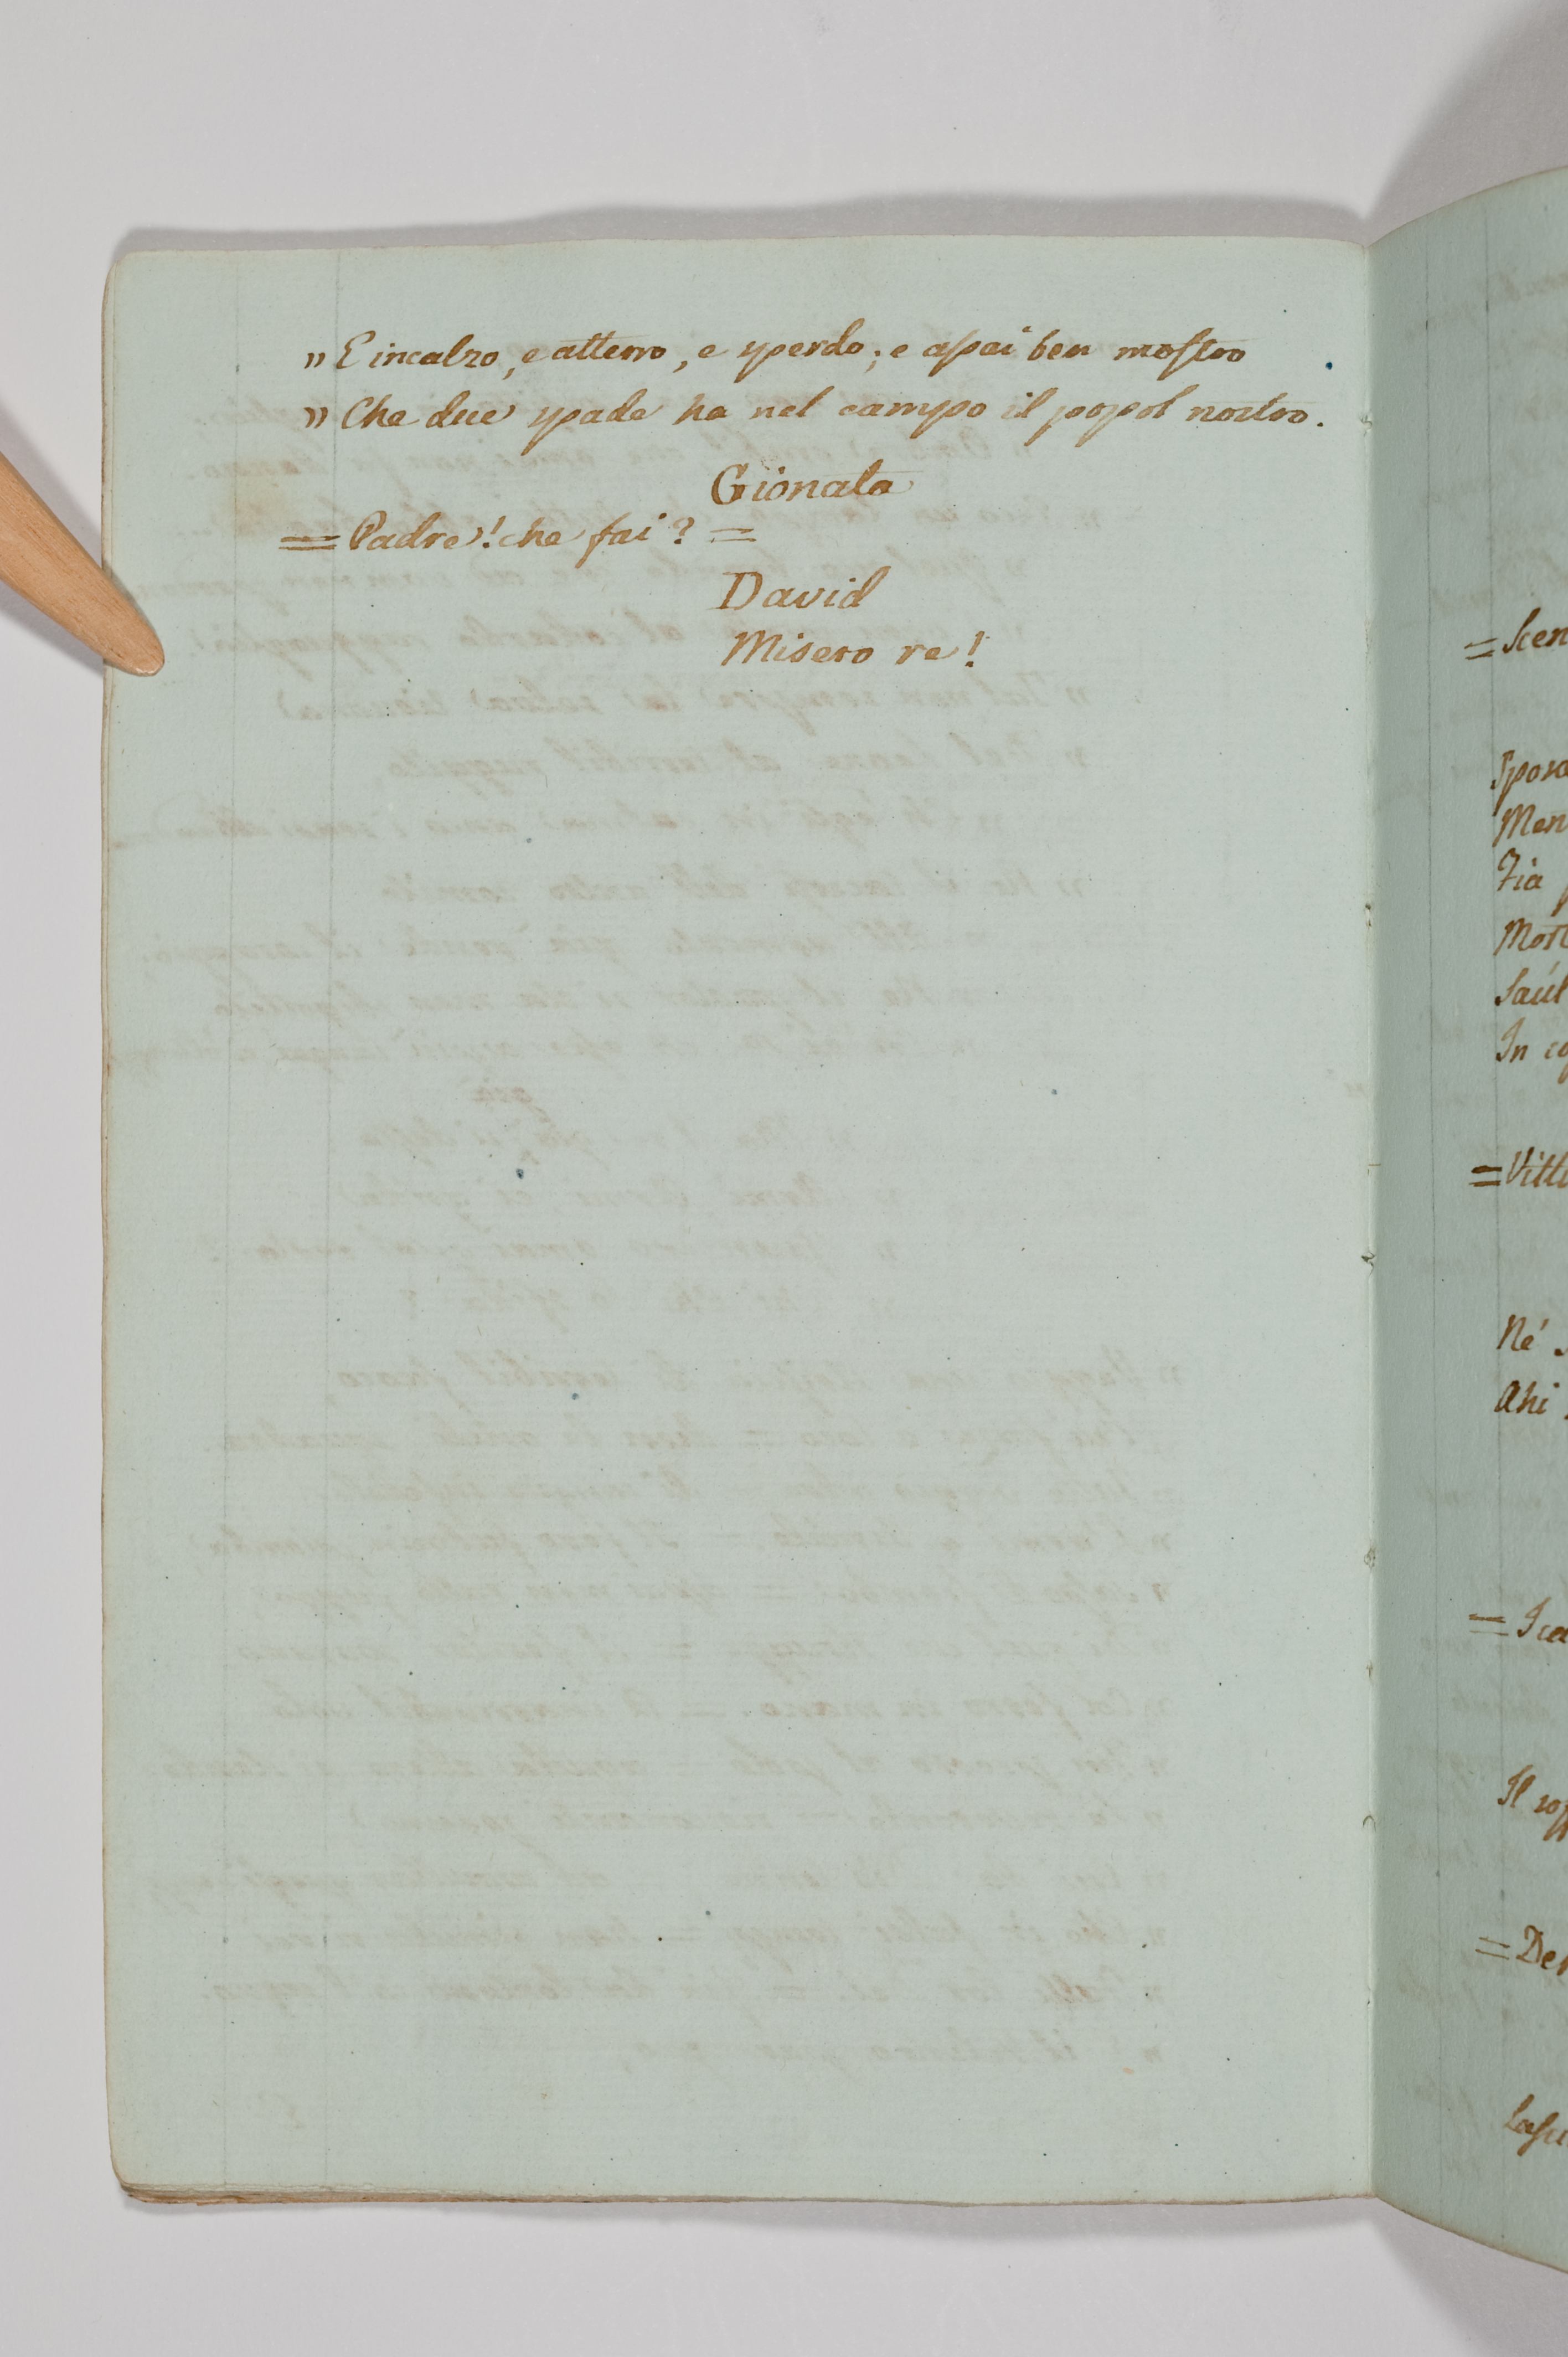 " E incalzo, e atterro, e sperdo; e assai ben mostro
" Che due spade ha nel campo il popol nostro.
Gionata
= Padre! che fai? =
David
Misero re!
= Scen
Sposa
Men
Fia
Most
Saúl
In
= Vitt
Né
Ahi
Il
= Der